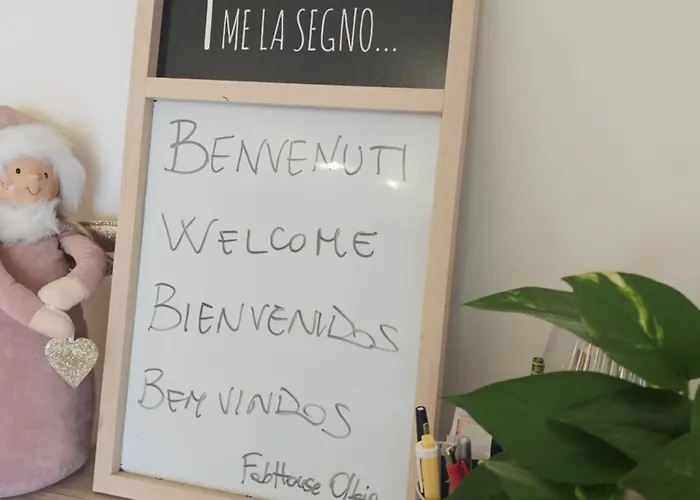 ME LA SEGNO...
BENVENUTI
WELCOME
BIENVENIDOS
BEM VINDOS
FabHouse Olbia